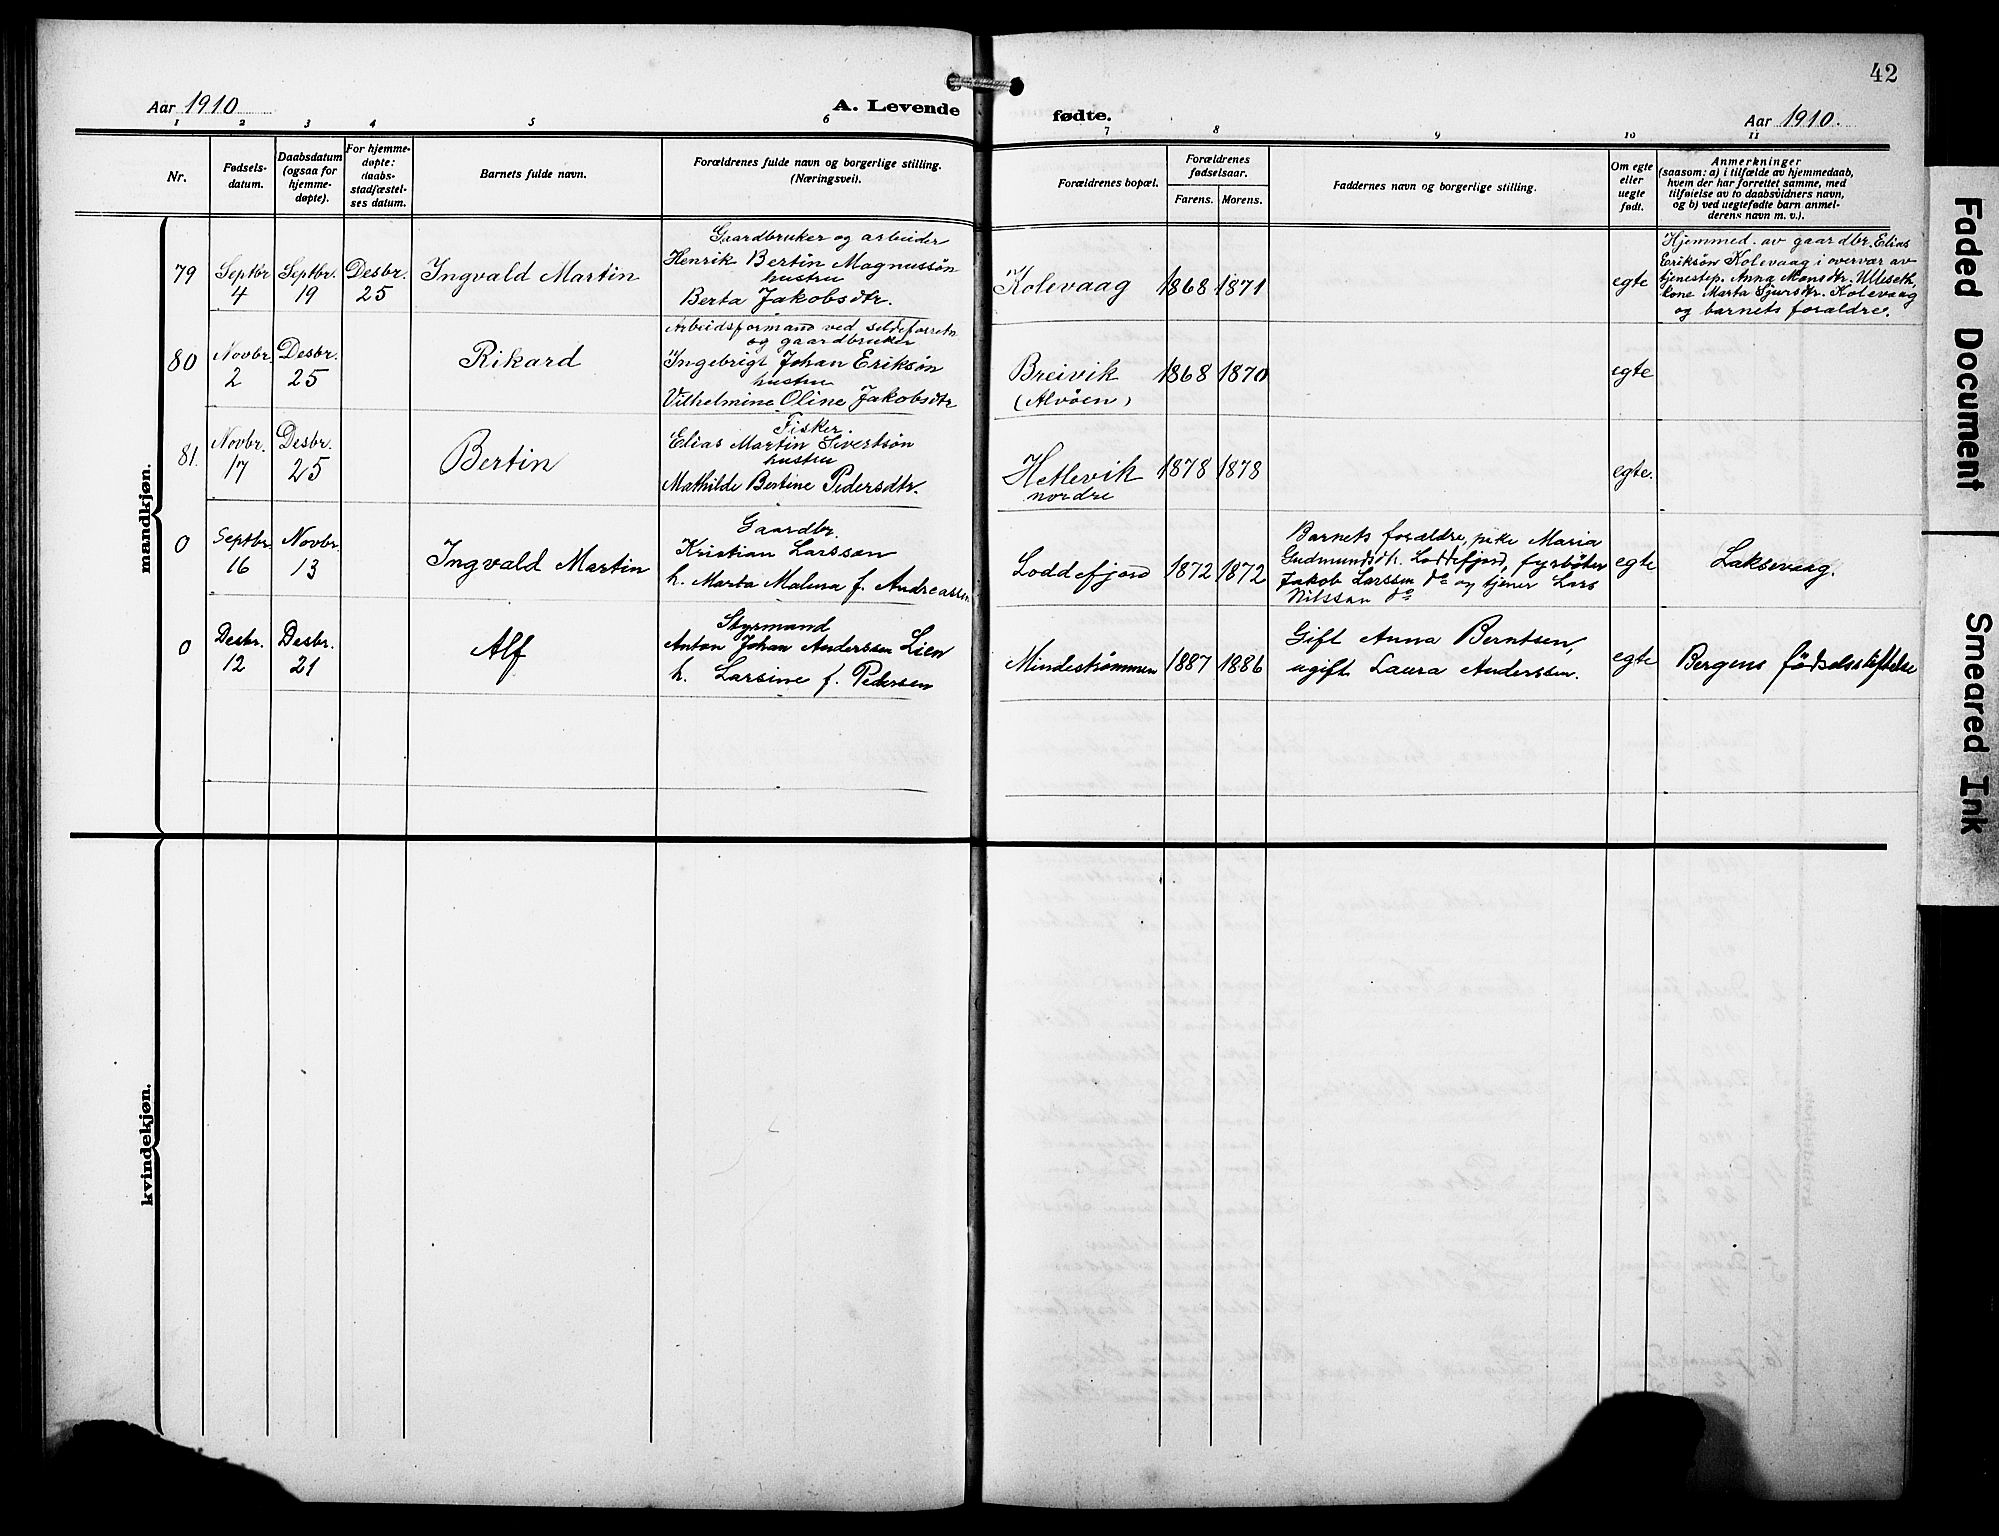 42
Aar 1910
A. Levende
fødte.
Aar 1910.
1 2 3 4 5 6 7 8 9 10 11
Nr.
Fødsels-
datum.
Daabsdatum
(ogsaa for
hjemme-
døpte).
For hjemme-
døpte:
daabs-
stadfæstel-
ses datum.
Barnets fulde navn.
Forældrenes fulde navn og borgerlige stilling.
(Næringsvei).
Forældrenes bopæl.
Forældrenes
fødselsaar.
Farens. Morens.
Faddernes navn og borgerlige stilling.
Om egte
eller
uegte
født.
Anmerkninger
(saasom: a) i tilfælde av hjemmedaab,
hvem der har forrettet samme, med
tilføielse av to daabsvidners navn,
og b) ved uegtefødte barn anmel-
derens navn m. v.).
mandkjøn.
79
Septbr.
4
Septbr.
19
Desbr.
25
Ingvald Martin
Gaardbruker og arbeider
Henrik Bertin Magnussøn
hustru
Berta Jakobsdtr.
Kolevaag
1868 1871
egte
Hjemmed. av gaardbr. Elias
Eriksøn Kolevaag i overvær av
tjenestep. Anna Monsdtr. Ulleseth,
kone Marta Sjursdtr. Kolevaag
og barnets forældre.
80
Novbr.
2
Desbr.
25
Rikard
Arbeidsformand ved sildeforretn.
og gaardbruker
Ingebrigt Johan Eriksøn
hustru
Vilhelmine Oline Jakobsdtr
Breivik
(Alvøen)
1868 1870
egte
81.
Novbr.
17
Desbr.
25
Bertin
Fisker.
Elias Martin Sivertsøn
hustru
Mathilde Bertine Pedersdtr.
Hetlevik
nordre
1878 1878
egte.
0
Septbr.
16
Novbr.
13
Ingvald Martin
Gaardbr.
Kristian Larssen
h. Marta Malena f. Andreassen
Loddefjord
1872 1872
Barnets forældre, pike Maria
Gudmundsdt. Loddefjord, fyrbøter
Jakob Larssen do og tjener Lars
Nilssen do
egte
Laksevaag.
0
Desbr.
12
Desbr.
21
Alf
Styrmand
Anton Johan Anderssen Lien
h. Larsine f. Pedersen
Mindestrømmen
1887 1886
Gift Anna Berntsen,
ugift Laura Anderssen.
egte
Bergens fødselsstiftelse
kvindekjøn.
Faded Document
Smeared Ink